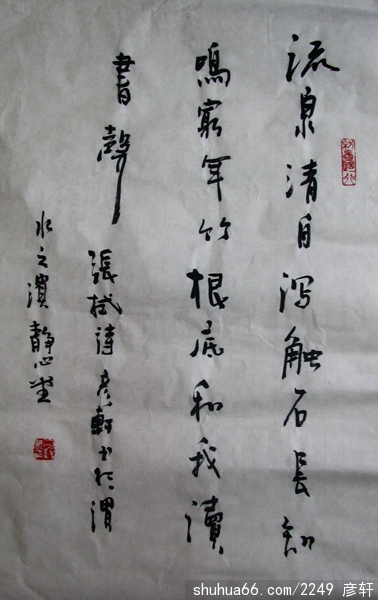 流泉清自瀉触石長短
鳴窮年竹根底和我讀
書聲
張栻詩彦軒书於渭
水之濱靜心堂
shuhua66.com/2249 彦轩